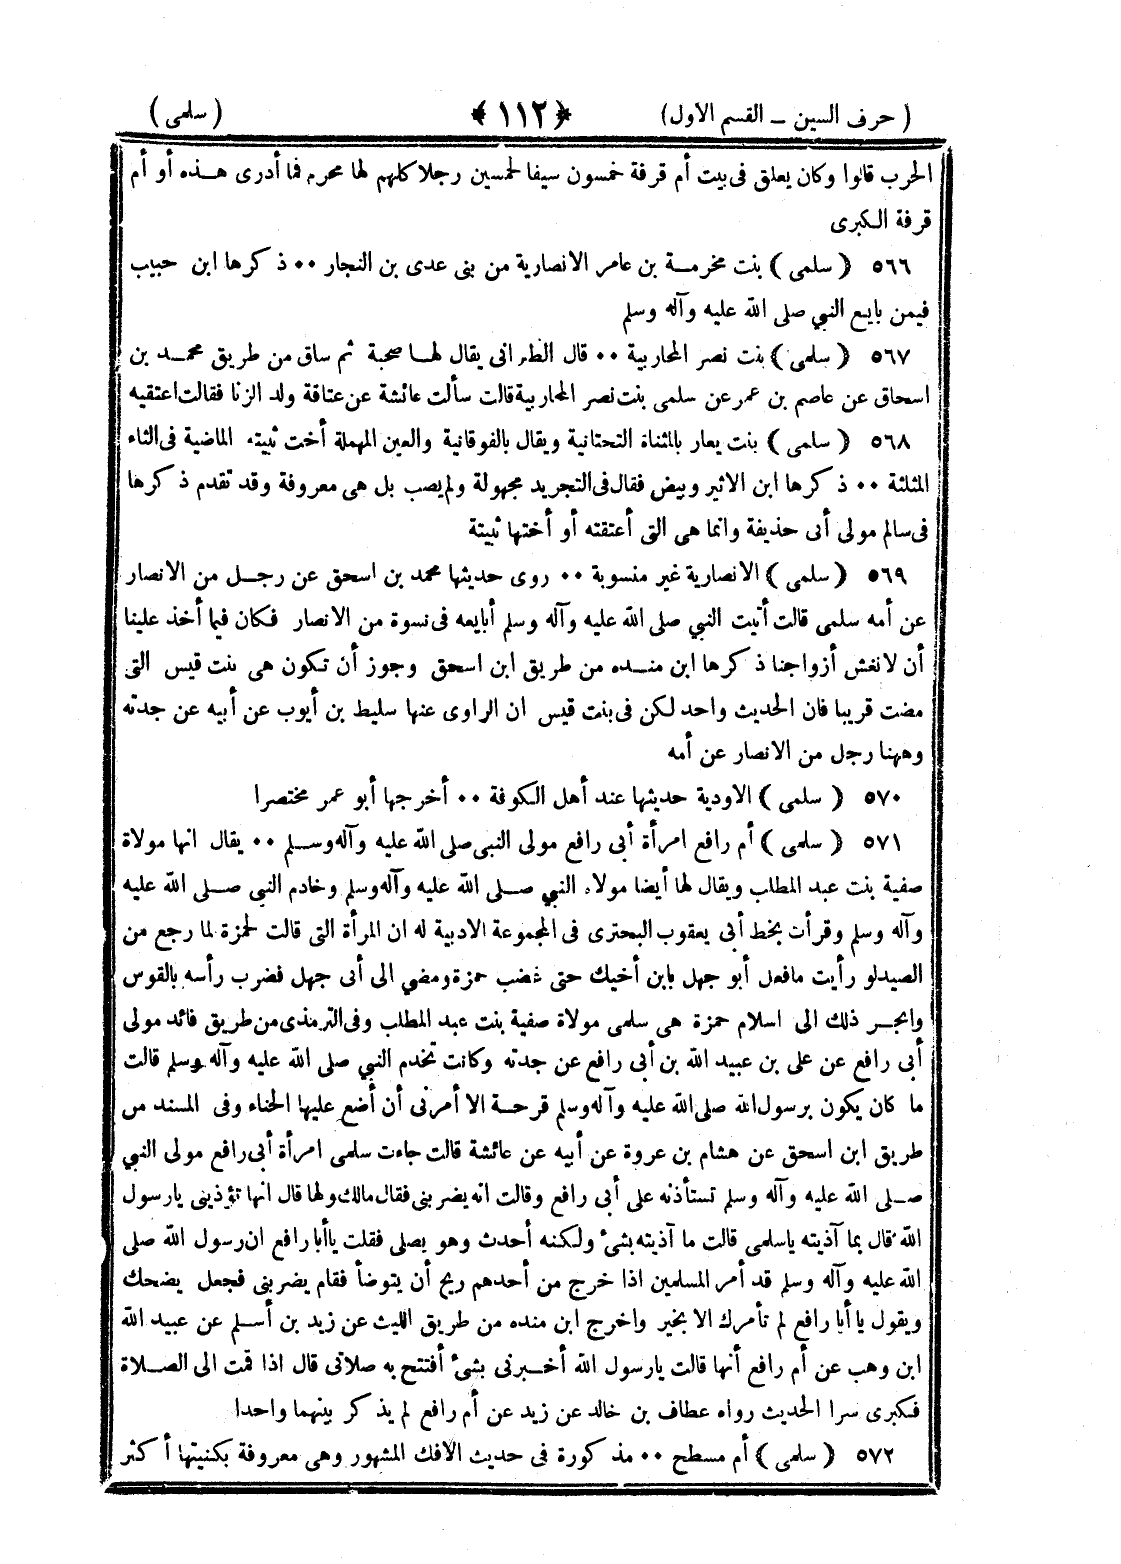 ( حرف السين ـ القسم الاول) ﴿ ١١٢ ﴾ ( سلمى )
الحرب قالوا وكان يعلق فى بيت أم قرفة خمسون سيفا لخمسين رجلا كلهم لها محرم فما أدرى هـذه أو أم
قرفة الكبرى
٥٦٦ ( سلمى ) بنت مخرمة بن عامر الانصارية من بنى عدى بن النجار ٠٠ ذكرها ابن حبيب
فيمن بايع النبي صلى الله عليه وآله وسلم
٥٦٧ ( سلمى ) بنت نصر المحاربية ٠٠ قال الطبرانى يقال لها صحبة ثم ساق من طريق محمد بن
اسحاق عن عاصم بن عمر عن سلمى بنت نصر المحاربية قالت سألت عائشة عن عتاقة ولد الزنا فقالت اعتقيه
٥٦٨ ( سلمى ) بنت يعار بالمثناة التحتانية ويقال بالفوقانية والعين المهملة أخت ثبيتة الماضية فى الثاء
المثلثة ٠٠ ذكرها ابن الاثير وبيض فقال فى التجريد مجهولة ولم يصب بل هى معروفة وقد تقدم ذكرها
فى سالم مولى أبى حذيفة وانما هى التى أعتقته أو أختها ثبيتة
٥٦٩ ( سلمى ) الانصارية غير منسوبة ٠٠ روى حديثها محمد بن اسحق عن رجل من الانصار
عن أمه سلمى قالت أتيت النبي صلى الله عليه وآله وسلم أبايعه فى نسوة من الانصار فكان فيما أخذ علينا
أن لانغش أزواجنا ذكرها ابن منده من طريق ابن اسحق وجوز أن تكون هى بنت قيس التى
مضت قريبا فان الحديث واحد لكن فى بنت قيس ان الراوى عنها سليط بن أيوب عن أبيه عن جدته
وههنا رجل من الانصار عن أمه
٥٧٠ ( سلمى ) الاودية حديثها عند أهل الكوفة ٠٠ أخرجها أبو عمر مختصرا
٥٧١ ( سلمى ) أم رافع امرأة أبى رافع مولى النبى صلى الله عليه وآله وسلم ٠٠ يقال انها مولاة
صفية بنت عبد المطلب ويقال لها أيضا مولاة النبي صلى الله عليه وآله وسلم وخادم النبى صلى الله عليه
وآله وسلم وقرأت بخط أبى يعقوب البحترى فى المجموعة الادبية له ان المرأة التى قالت لحمزة لما رجع من
الصيد لو رأيت مافعل أبو جهل بابن أخيك حتى غضب حمزة ومضى الى أبى جهل فضرب رأسه بالقوس
وانجر ذلك الى اسلام حمزة هى سلمى مولاة صفية بنت عبد المطلب وفى الترمذى من طريق فائد مولى
أبى رافع عن على بن عبيد الله بن أبى رافع عن جدته وكانت تخدم النبي صلى الله عليه وآله وسلم قالت
ما كان يكون برسول الله صلى الله عليه وآله وسلم قرحة الا أمرنى أن أضع عليها الحناء وفى المسند من
طريق ابن اسحق عن هشام بن عروة عن أبيه عن عائشة قالت جاءت سلمى امرأة أبى رافع مولى النبي
صلى الله عليه وآله وسلم تستأذنه على أبى رافع وقالت انه يضربنى فقال مالك ولها قال انها تؤذينى يارسول
الله قال بما آذيته ياسلمى قالت ما آذيته بشئ ولكنه أحدث وهو يصلى فقلت ياأبا رافع ان رسول الله صلى
الله عليه وآله وسلم قد أمر المسلمين اذا خرج من أحدهم ريح أن يتوضأ فقام يضربنى فجعل يضحك
ويقول ياأبا رافع لم تأمرك الا بخير واخرج ابن منده من طريق الليث عن زيد بن أسلم عن عبيد الله
ابن وهب عن أم رافع أنها قالت يارسول الله أخبرنى بشئ أفتتح به صلاتى قال اذا قمت الى الصلاة
فكبرى سرا الحديث رواه عطاف بن خالد عن زيد عن أم رافع لم يذكر بينهما واحدا
٥٧٢ ( سلمى ) أم مسطح ٠٠ مذكورة فى حديث الافك المشهور وهى معروفة بكنيتها أكثر